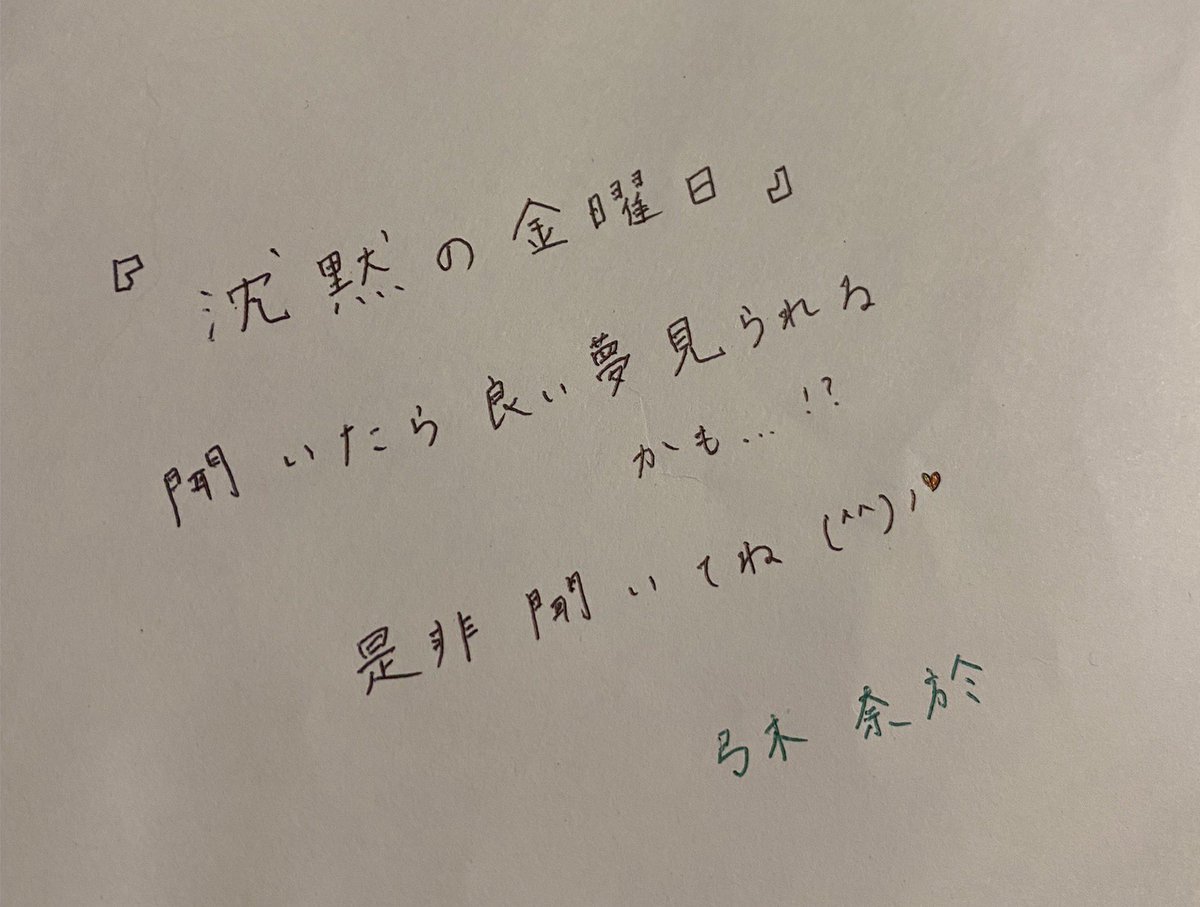 『沈黙の金曜日』
聞いたら良い夢見られる
かも...!?
是非聞いてね(^^)ノ♥
弓木奈於